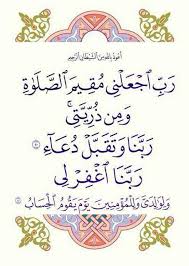 أعوذ بالله من الشيطان الرجيم
رَبِّ ٱجْعَلْنِى مُقِيمَ ٱلصَّلَوٰةِ
وَمِن ذُرِّيَّتِى ۚ
رَبَّنَا وَتَقَبَّلْ دُعَآءِ ٤٠
رَبَّنَا ٱغْفِرْ لِى
وَلِوَٰلِدَىَّ وَلِلْمُؤْمِنِينَ يَوْمَ يَقُومُ ٱلْحِسَابُ ٤١